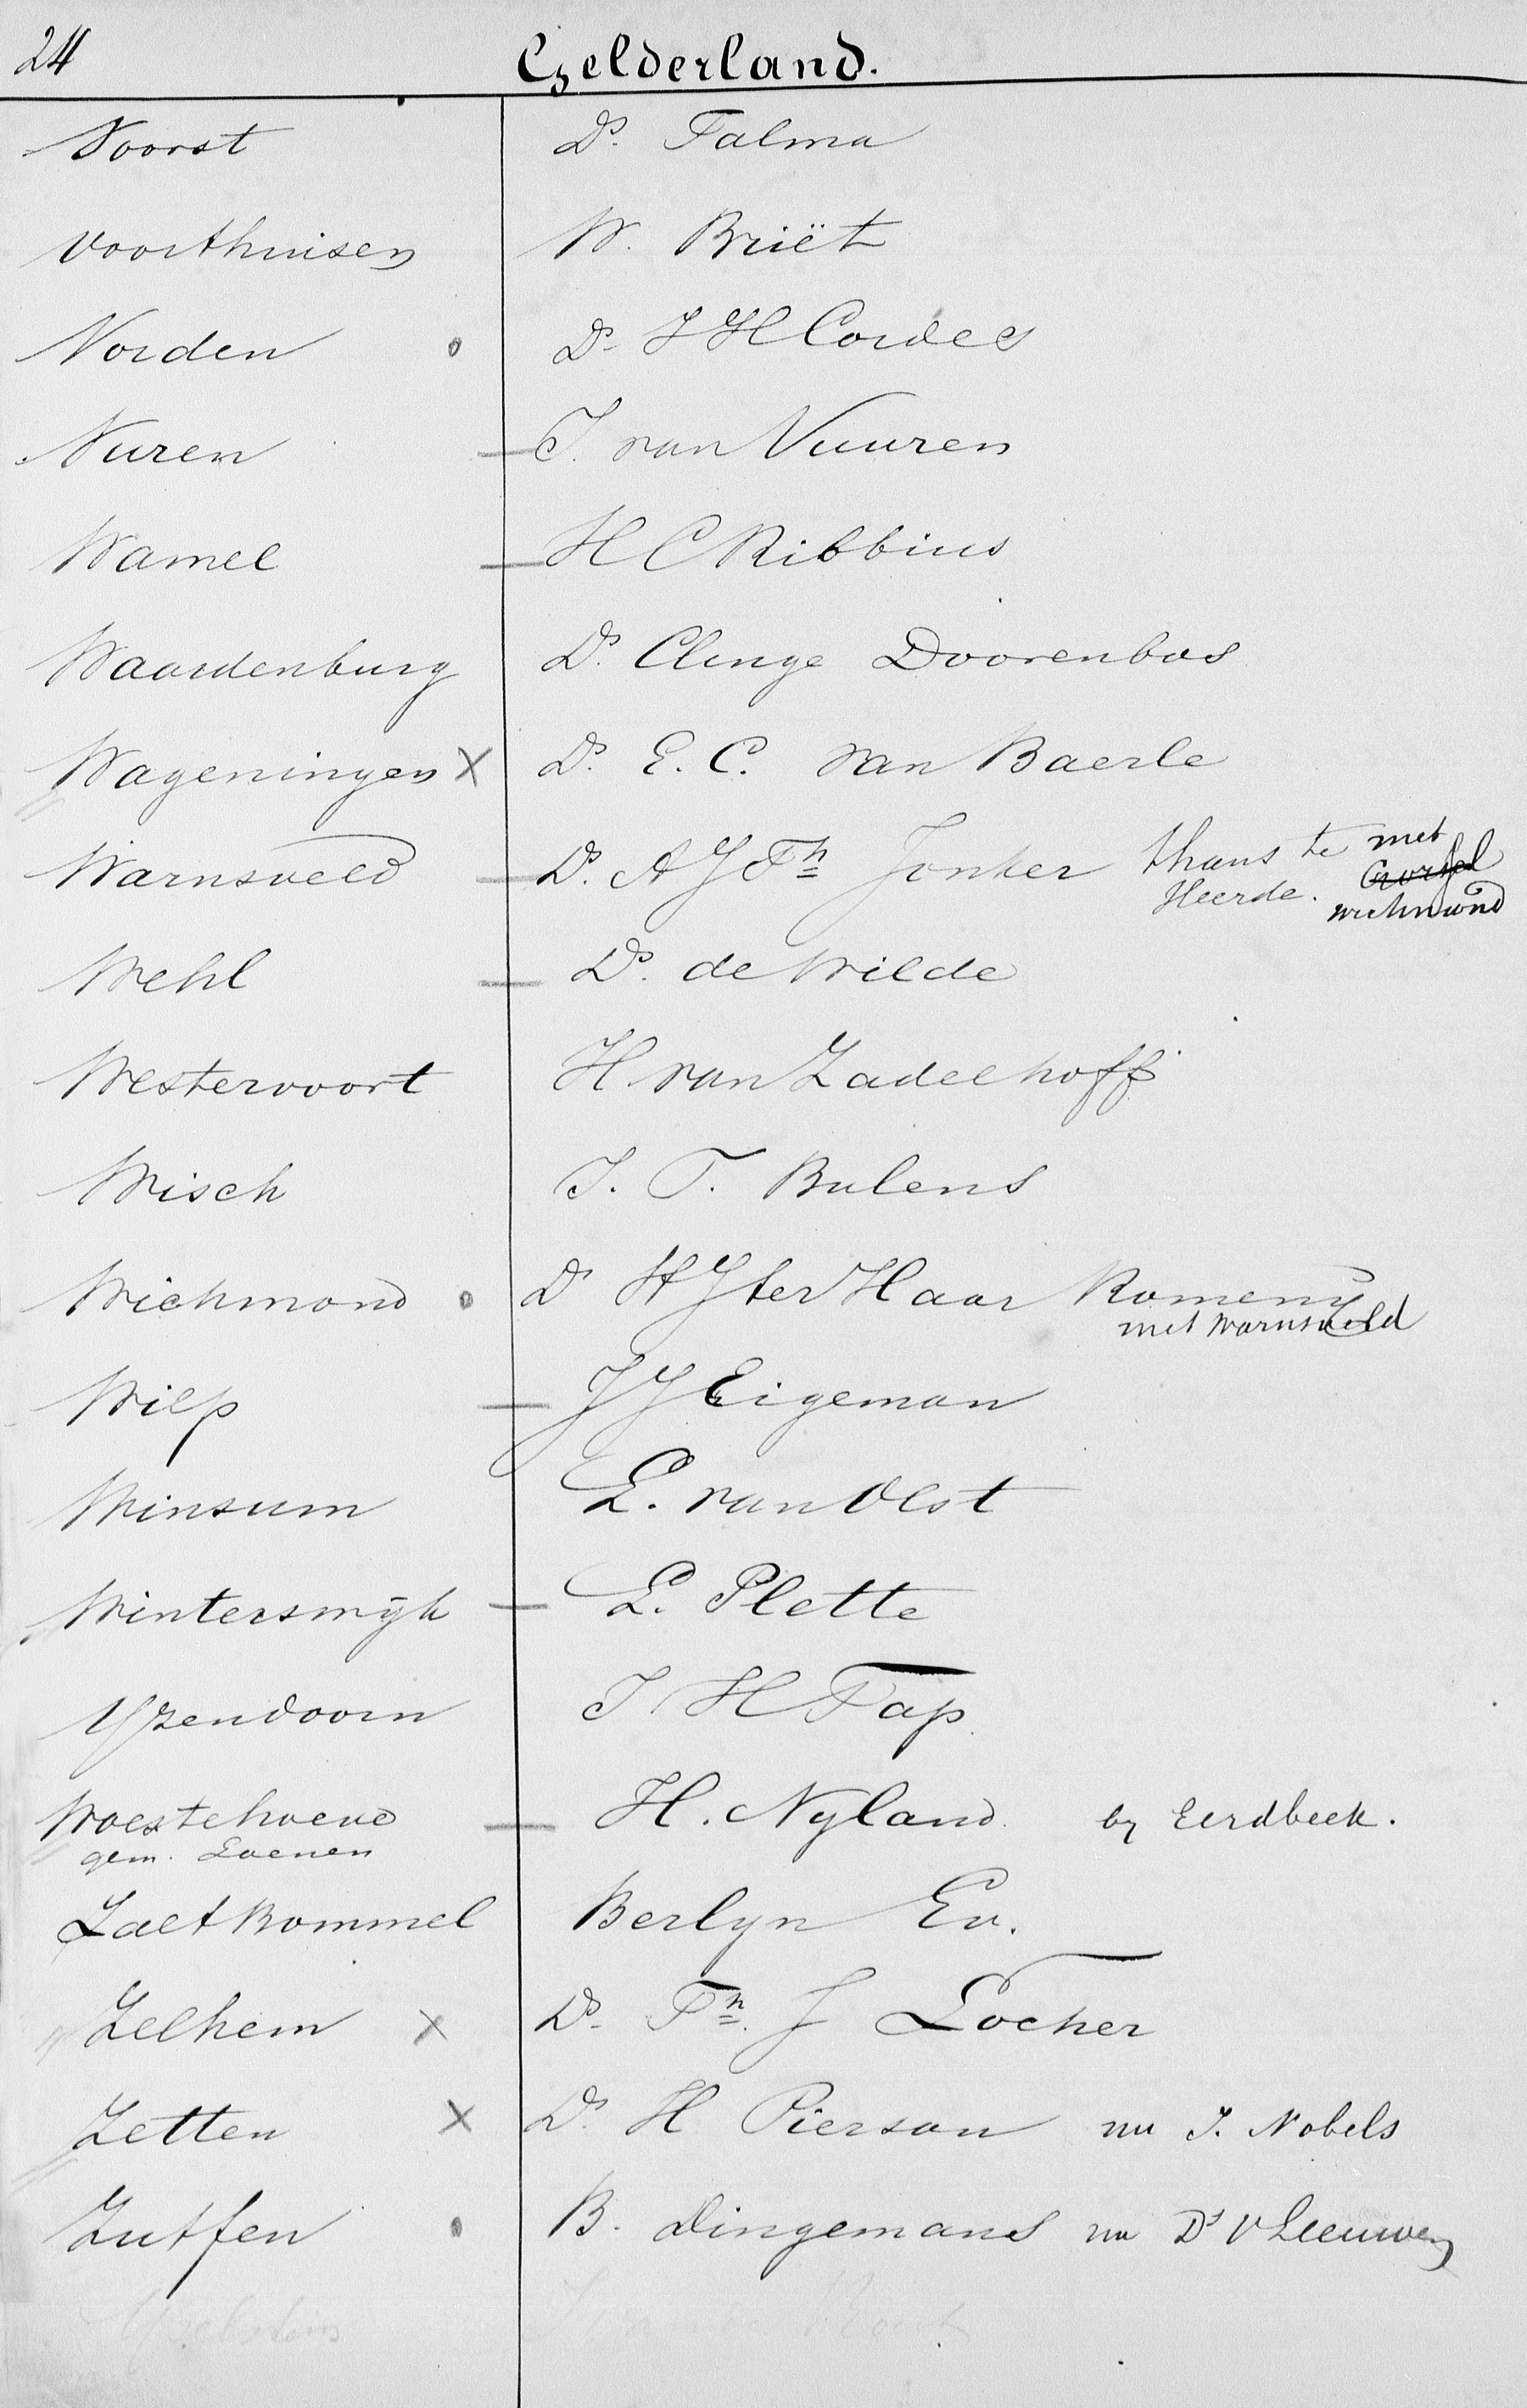 24 Gelderland.
Voorst Ds. Talma
Voorthuisen W. Briët
Vorden o Ds. J H Cordes
Vuren — J. van Vuuren
Wamel — H C Ribbius
Waardenburg Ds. Clinge Doorenbos
Wageningen X Ds. E. C. van Baerle
Warnsveld — Ds. A J Th Jonker thans te Heerde. met Gorssel Wichmond
Wehl — Ds. de Wilde
Westervoort H van Zadelhoff
Wisch J. T. Bulens
Wichmond o Ds H J ter Haar Romeny
met Warnsveld
Wilp — J J Eigeman
Winsum L. van Olst
Winterswijk — L. Plette
Yzendoorn J H Tap
Woestehoeve — H. Nyland by Eerdbeek.
gem. Loenen
Zaltbommel Berlyn Ev.
Zelhem X Ds. Th. J Locher
Zetten X Ds. H Pierson nu J. Nobels
Zutfen o B. Dingemans nu Ds V Leeuwen